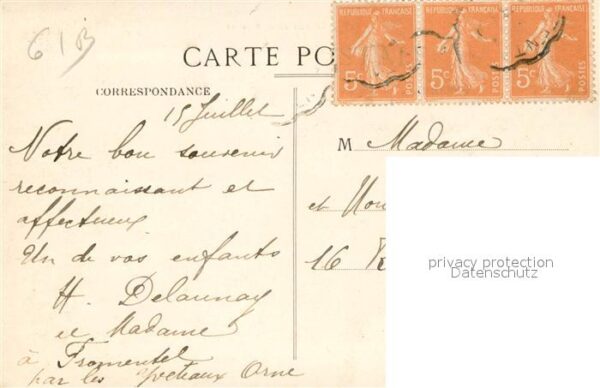 61B
RÉPUBLIQUE FRANÇAISE RÉPUBLIQUE FRANÇAISE RÉPUBLIQUE FRANÇAISE
5c POSTES 5c POSTES 5c POSTES
CARTE PO
CORRESPONDANCE
15 Juillet
Notre bon souvenir
reconnaissant et
affectueux
Un de vos enfants
H. Delaunay
et Madame
à Fromentel
par les Yveteaux Orne
M Madame
et
16
privacy protection
Datenschutz